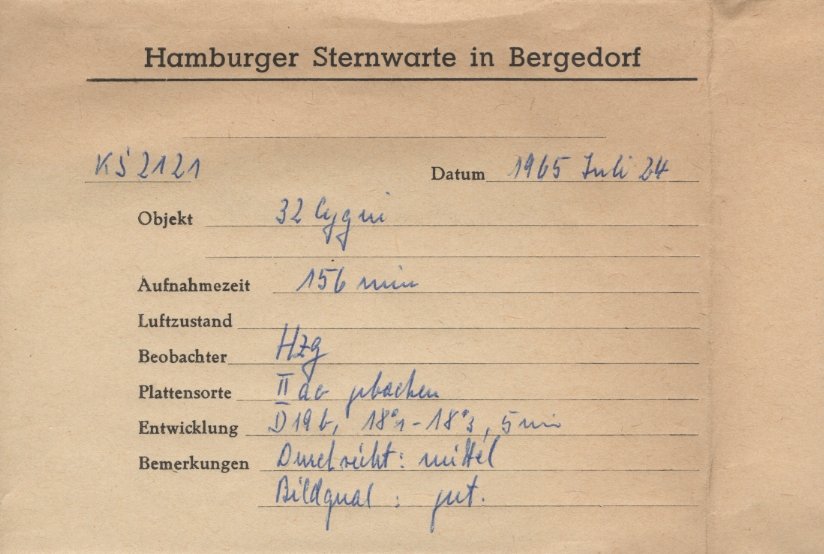 Hamburger Sternwarte in Bergedorf
KS 2121 Datum 1965 Juli 24
Objekt 32 Cygni
Aufnahmezeit 156 min
Luftzustand
Beobachter Hzg
Plattensorte II a o gebacken
Entwicklung D19b, 18°1-18°3, 5 min
Bemerkungen Durchsicht: mittel
Bildqual: gut.